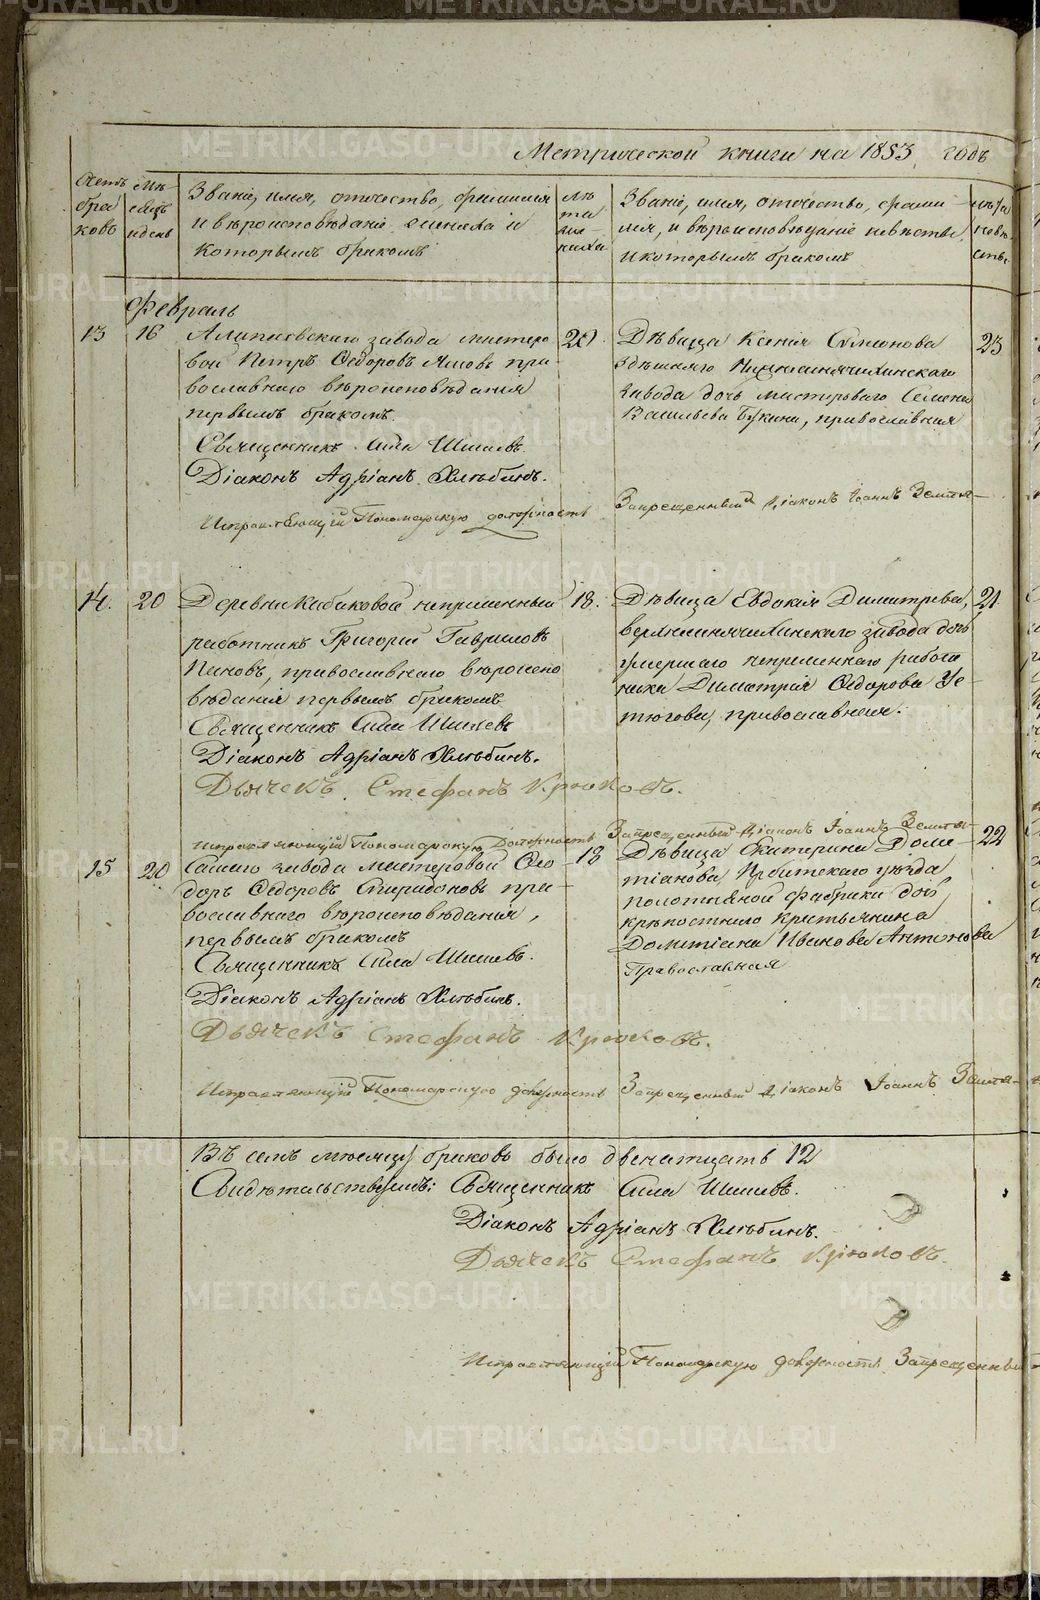 Метрической книги на 1853 годъ
Счетъ браковъ
Мѣсяцъ и день
Званіе, имя, отчество, фамилія
и вѣроисповѣданіе жениха и
которымъ бракомъ
Лѣта жениха
Званіе, имя, отчество, фами-
лія, и вѣроисповѣданіе невѣсты,
и которымъ бракомъ
лѣта невѣсты
Февраль
13
16
Алапаевскаго завода мастеро
вой Петръ Ѳедоровъ пра-
вославнаго вѣроисповѣданія
первымъ бракомъ.
20
Дѣвица Ксенія Симіонова
здѣшняго Нижнесинячихинскаго
завода дочь мастероваго Семена
Васильева Букина, православная
23
Священникъ Сила Шишевъ.
Діаконъ Адріанъ Хлѣбинъ.
Исправляющій Пономарскую должность Запрещенный Діаконъ Іоаннъ
14.
20
Деревни Кабаковой непременный
работникъ Григорій Гавриловъ
Пановъ, православнаго вѣроиспо
вѣданія первымъ бракомъ
18.
Дѣвица Евдокія Димитріева,
верхнесинячихинскаго завода дочь
умершаго непременнаго работ
ника Димитрія Ѳедорова Ус-
тюгова, православная.
21
Священникъ Сила Шишевъ
Діаконъ Адріанъ Хлѣбинъ.
Дьячекъ Стефанъ Крюковъ.
Исправляющій Пономарскую Должность Запрещенный Діаконъ Іоаннъ
15
20
Самаго завода мастеровой Ѳео
доръ Ѳедоровъ Спиридоновъ пра
вославнаго вѣроисповѣданія,
первымъ бракомъ
18
Дѣвица Екатерина Доме-
тіанова, Ирбитскаго уѣзда,
полотняной фабрики дочь
крѣпостнаго крестьянина
Дометіана Иванова Антонова
Православная
22
Священникъ Сила Шишевъ.
Діаконъ Адріанъ Хлѣбинъ.
Дьячекъ Стефанъ Крюковъ.
Исправляющій Пономарскую должность Запрещенный Діаконъ Іоаннъ
Въ семъ мѣсяцѣ браковъ было двенатцать 12
Свидѣтельствуемъ: Священникъ Сила Шишевъ.
Діаконъ Адріанъ Хлѣбинъ.
Дьячекъ Стефанъ Крюковъ.
Исправляющій Пономарскую должность Запрещенный
METRIKI.GASO-URAL.RU